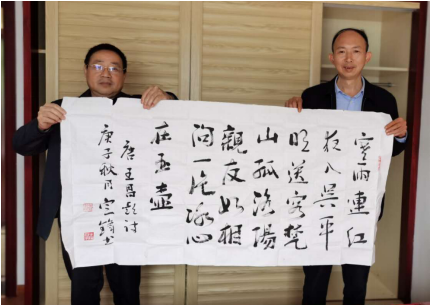 寒雨連江
夜入吳平
明送客楚
山孤洛陽
親友如相
问一片冰心
在玉壺
唐王昌龄诗
庚子秋月